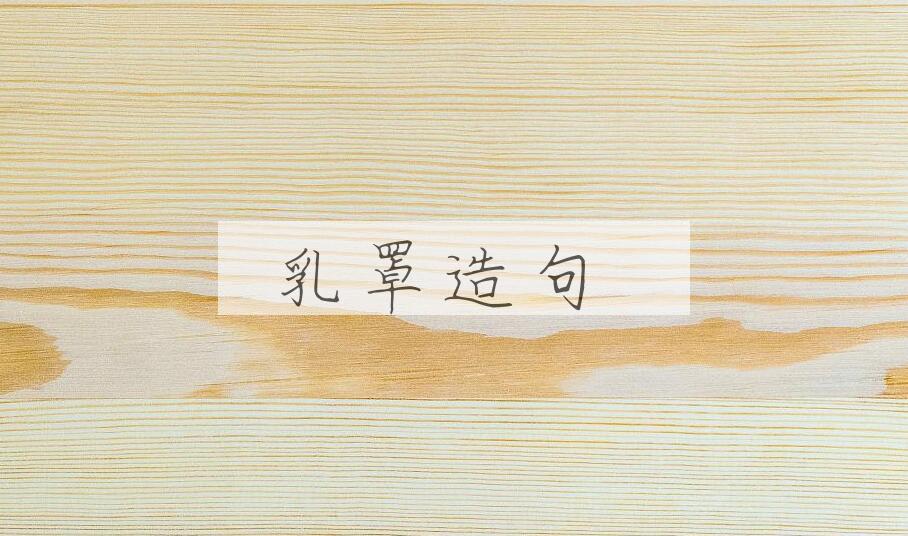 乳罩造句